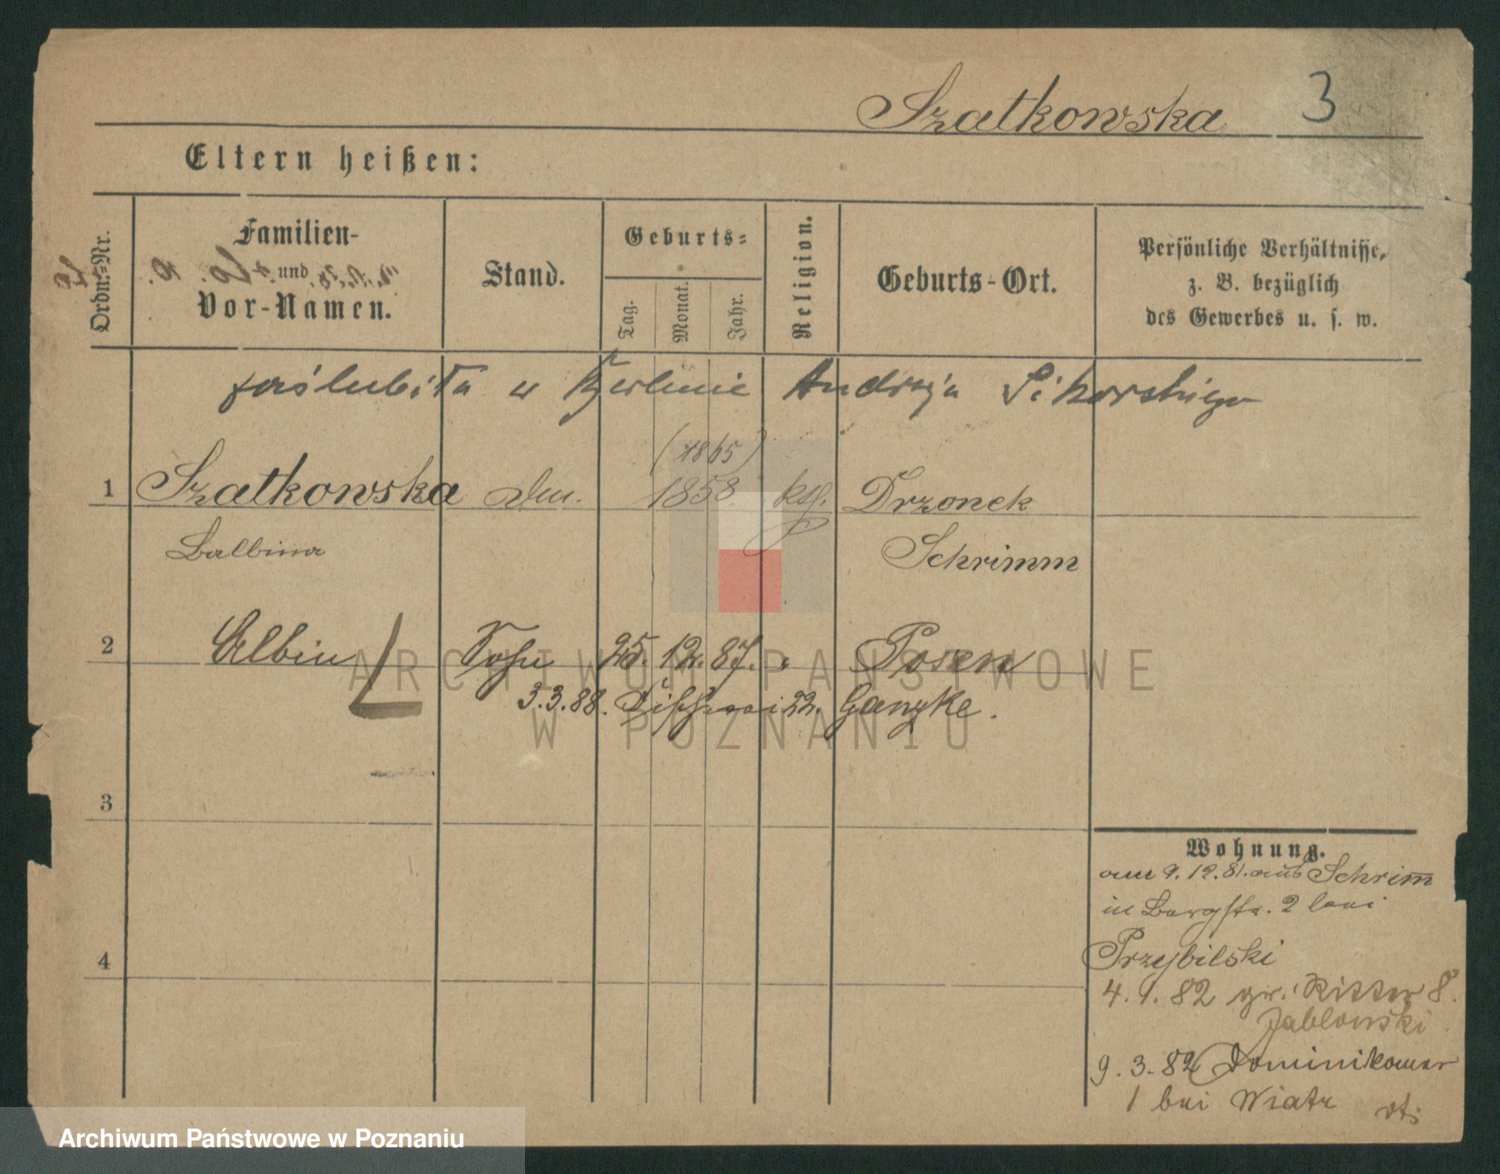 Szatkowska 3
Eltern heißen:
Ordn.-Nr.
Familien-
und
Vor-Namen.
Stand.
Geburts-
Tag.
Monat.
Jahr.
Religion.
Geburts-Ort.
Persönliche Verhältnisse,
z. B. bezüglich
des Gewerbes u. s. w.
zaślubiła w Berlinie Andrzeja Sikorskiego
(1865)
1 Szatkowska 1858 Drzonek
Balbina Schrimm
2 Albin Sohn 25. 12. 87. Posen
3.3.88. 22. Ganzke.
3
4
Wohnung.
am 9.12.81. aus Schrimm
in Bergstr. 2 bei
Przybilski
4. 1. 82 gr. Ritter 8.
Jablonski
9. 3. 82 Dominikaner
1 bei Wiatr
ARCHIWUM PAŃSTWOWE
W POZNANIU
Archiwum Państwowe w Poznaniu